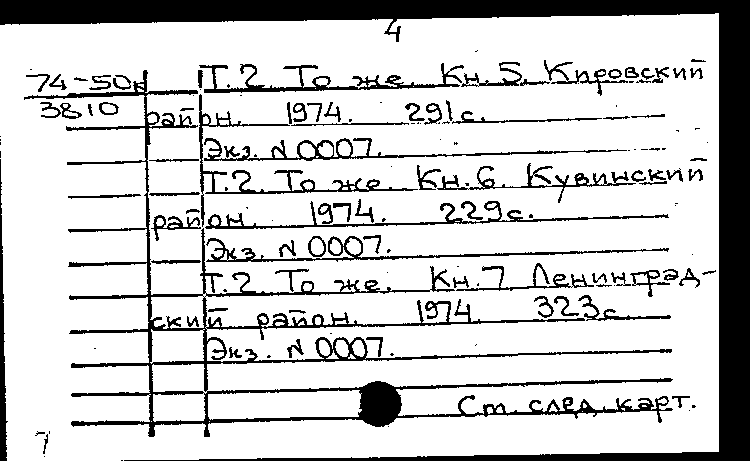 4
74-50к Т.2 То же. Кн.5. Кировский
3810 район. 1974. 291с.
Экз. N 0007.
Т.2. То же. Кн.6. Кувинский
район. 1974. 229с.
Экз. N 0007.
Т.2. То же. Кн.7 Ленинград-
ский район. 1974. 323с.
Экз. N 0007.
См. след. карт.
7